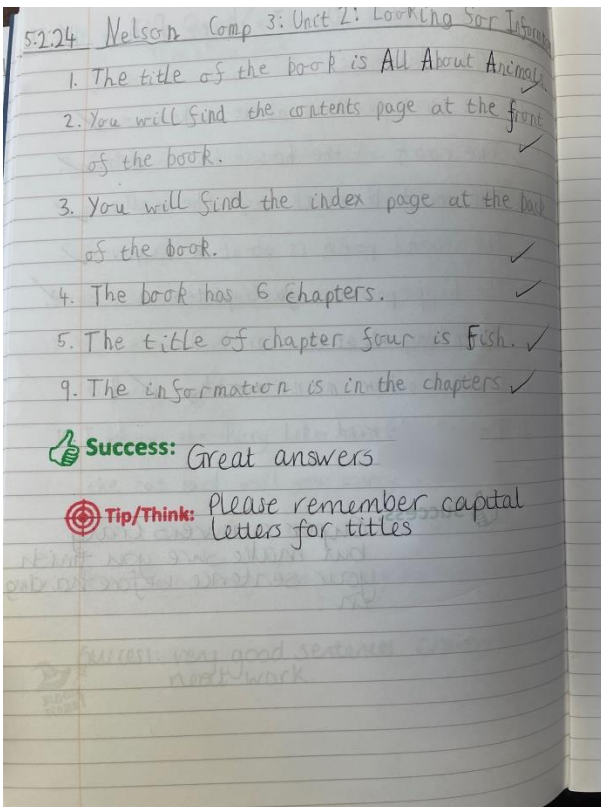 5.2.24 Nelson Comp 3: Unit 2: Looking for Informa
1. The title of the book is All About Animals.
2. You will find the contents page at the front
of the book.
3. You will find the index page at the back
of the book.
4. The book has 6 chapters.
5. The title of chapter four is Fish.
9. The information is in the chapters
Success: Great answers
Tip/Think: Please remember capital
letters for titles